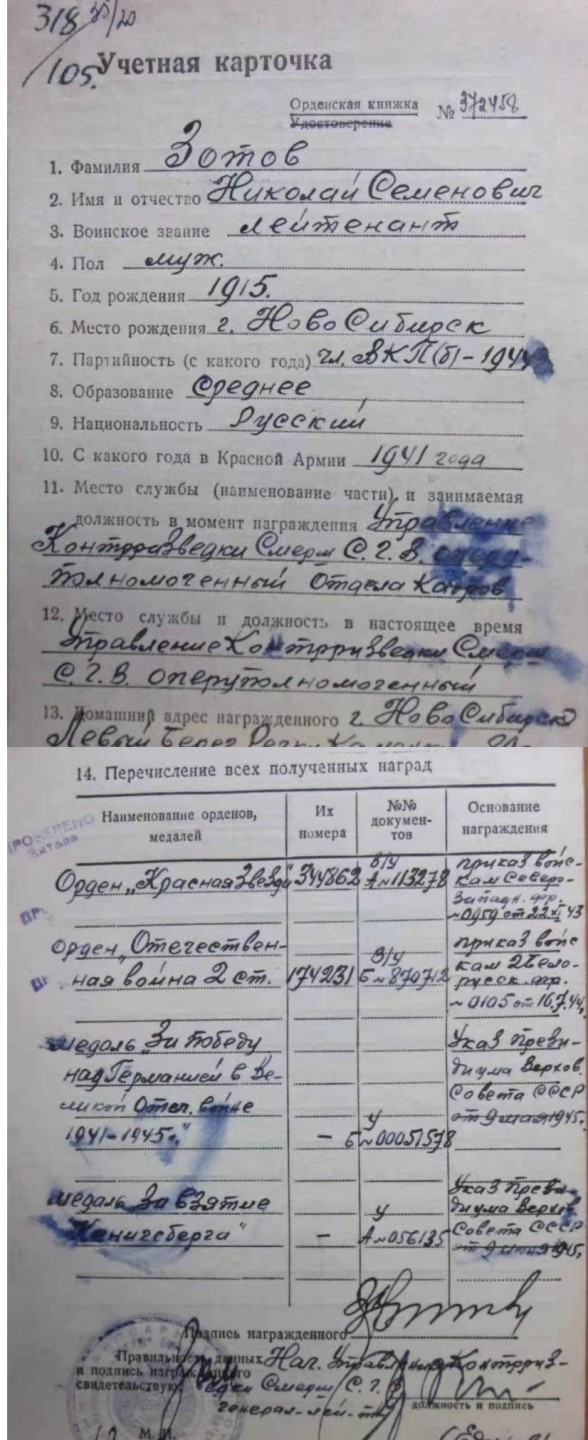 318 35/20
105.
Учетная карточка
Орденская книжка
Удостоверение
№ 372458
1. Фамилия Зотов
2. Имя и отчество Николай Семенович
3. Воинское звание лейтенант
4. Пол муж.
5. Год рождения 1915.
6. Место рождения г. Новосибирск
7. Партийность (с какого года) чл. ВКП(б) - 1944
8. Образование среднее
9. Национальность Русский
10. С какого года в Красной Армии 1941 года
11. Место службы (наименование части) и занимаемая
должность в момент награждения Управление
Контрразведки Смерш С.Г.В. оперу-
полномоченный Отдела Кадров
12. Место службы и должность в настоящее время
Управление Контрразведки Смерш
С.Г.В. оперуполномоченный
13. Домашний адрес награжденного г. Новосибирск
Левый берег Речки
14. Перечисление всех полученных наград
Наименование орденов, медалей
Их номера
№№ докумен-тов
Основание награждения
Орден „Красная Звезда" 344862 в/у А № 113278 приказ войс-
кам Северо-
Западн. фр.
№ 0959 от 43
Орден „Отечествен-
ная война 2 ст. 174231 в/у Б № 870712 приказ войс
кам 2 Бело-
русск. фр.
№ 0105 от 16.7.44.
медаль „За победу
над Германией в Ве-
ликой Отеч. войне
1941-1945г." - у Б № 00051578 Указ Прези-
диума Верхов.
Совета СССР
от 9 мая 1945г.
медаль За взятие
Кенигсберга" - у А № 056135 Указ Прези-
диума Верхов.
Совета СССР
от 9 июня 1945г.
Подпись награжденного
Правильность данных и подпись награжденного свидетельствую:
Нач. Управления Контрраз-
ведки Смерш С.Г.В
генерал-лей-т
должность и подпись
М. П.